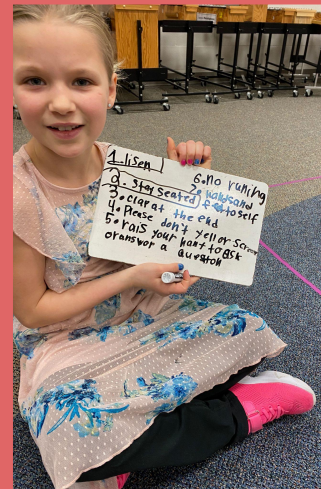 1. lisen
2. stay seated
3. clap at the end
4. Please don't yell or scream
5. rais your hant to ask
or answor a Question
6. no running
7. hands and
feet to self